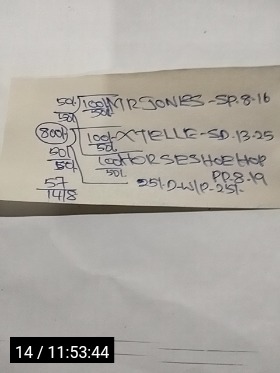 50/- 100/- MR JONES-SP.8-16
50/- 50/-
800/- 100/- XTELLE-SD.13-25
50/- 50/-
50/- 100/- HORSESHOE HOP
50/- PP-8.19
57 25/- D-W/P-25/-
14/8
14 / 11:53:44